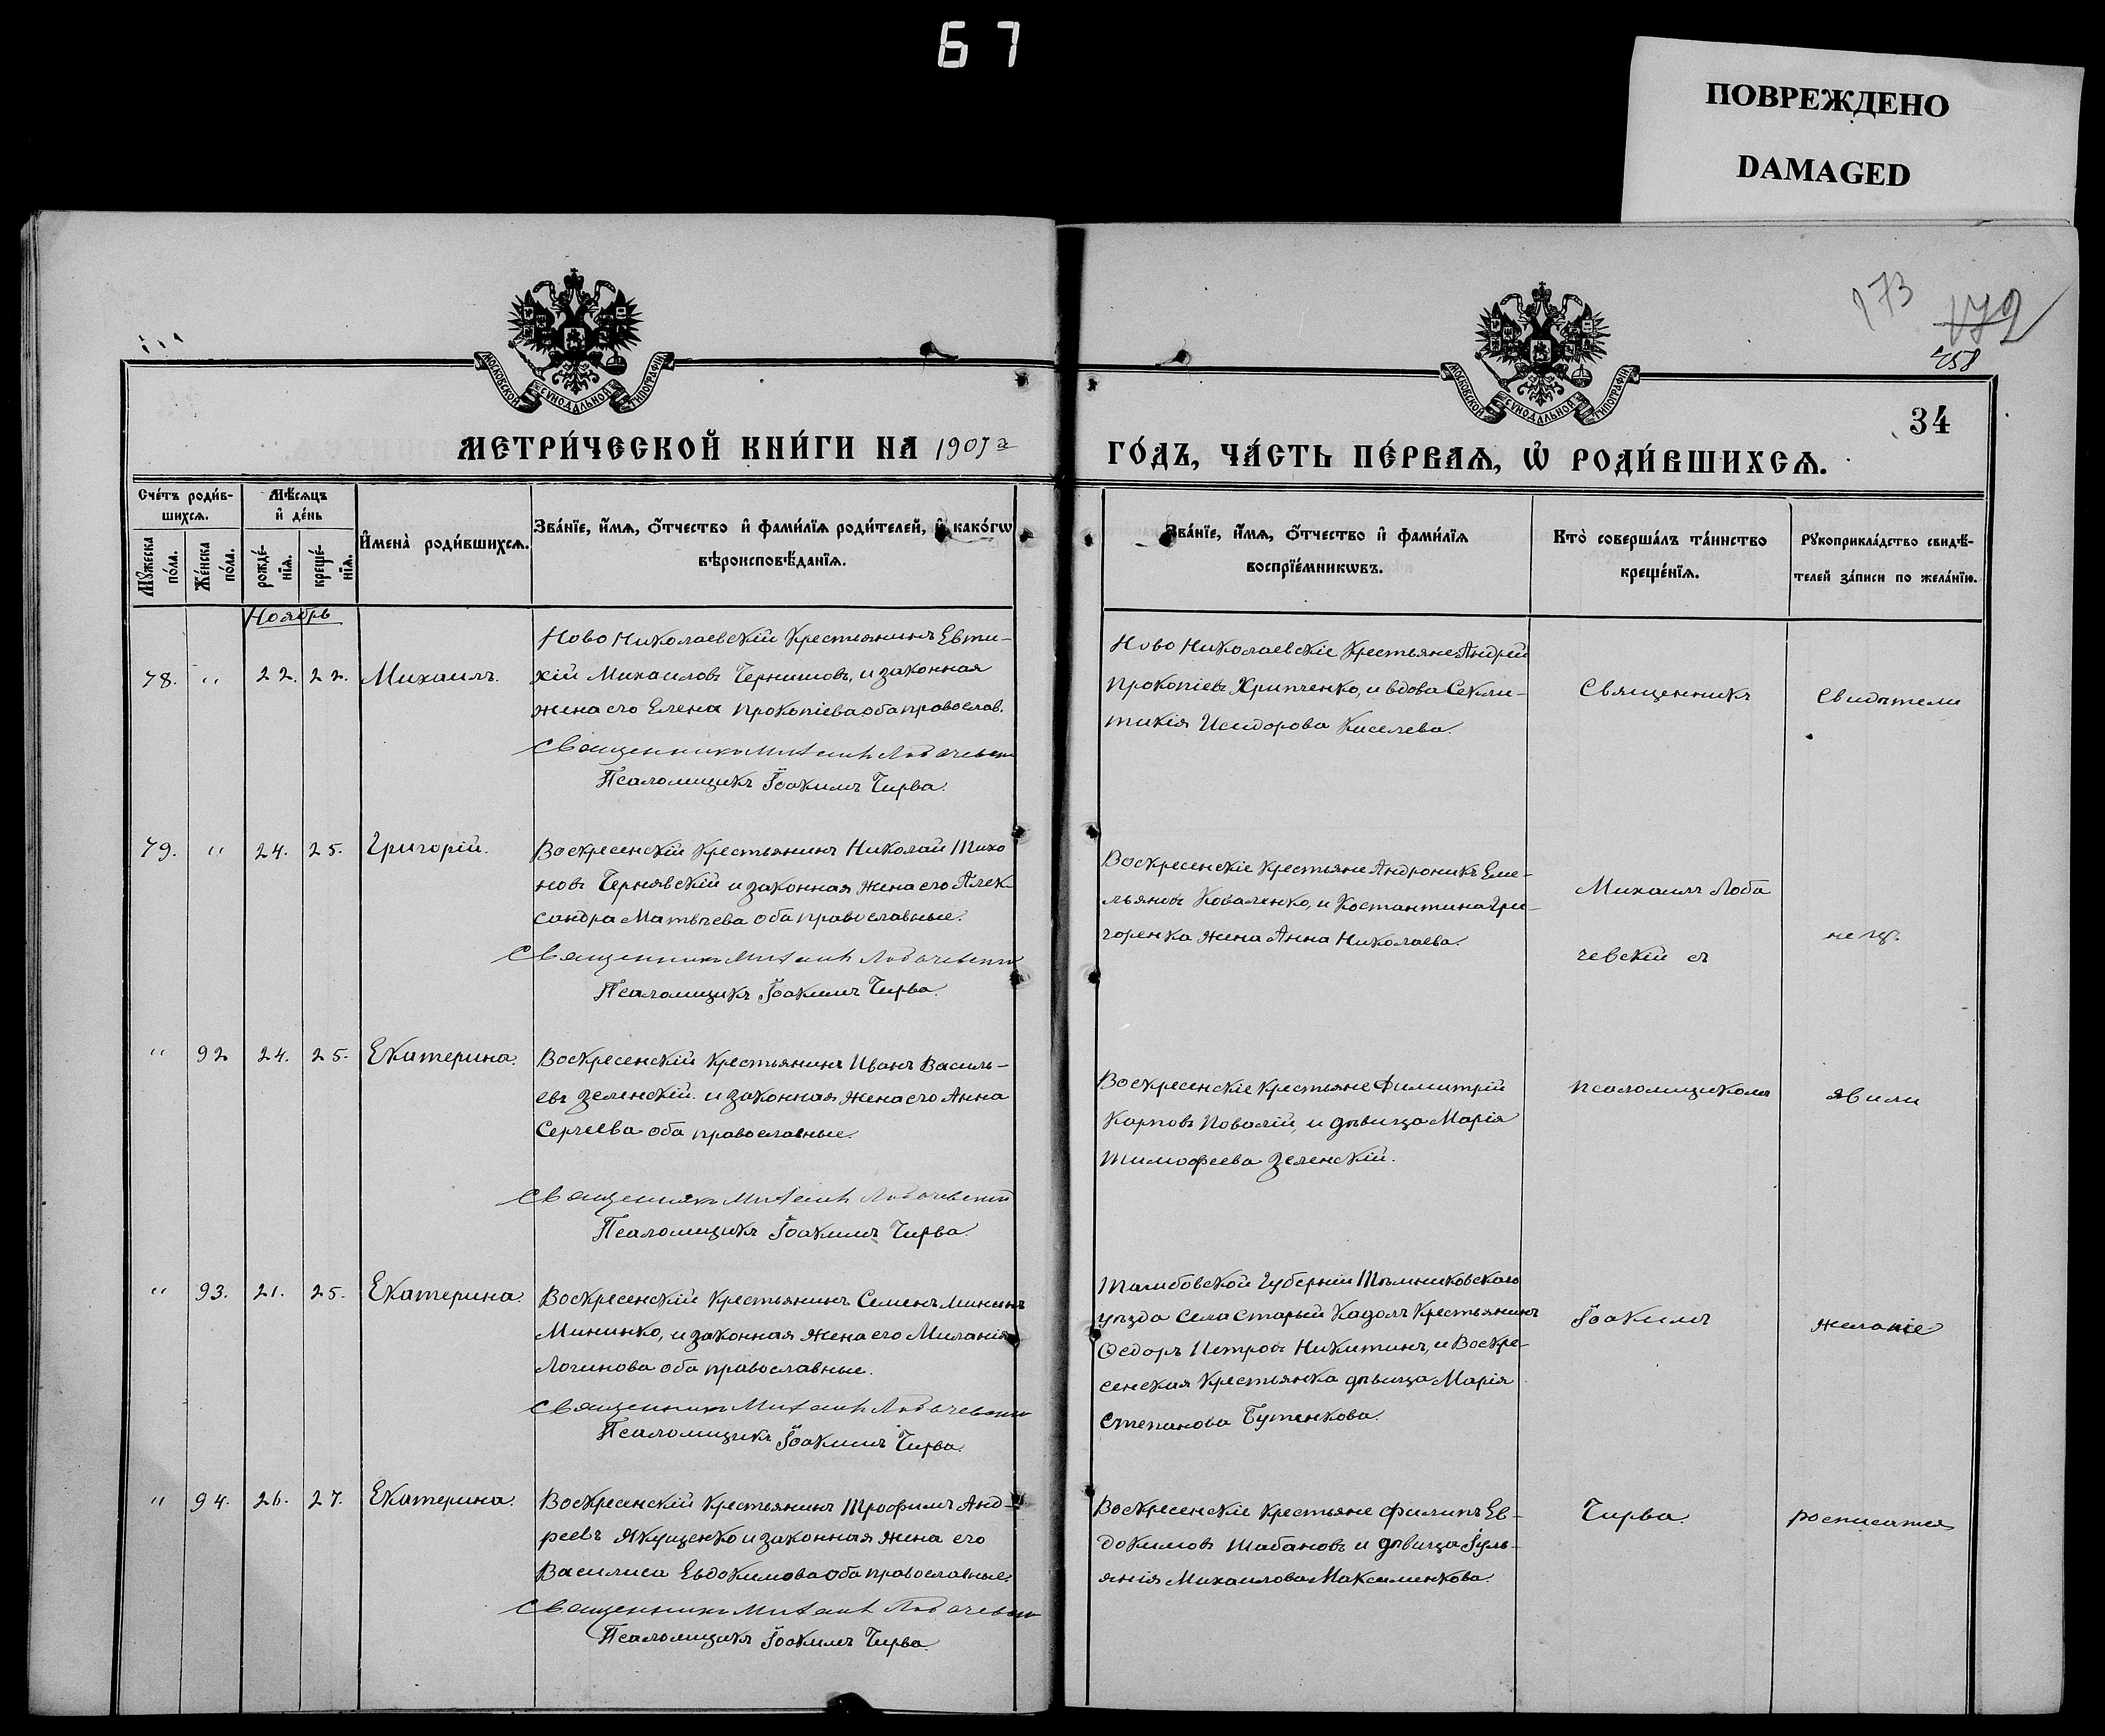 67
ПОВРЕЖДЕНО
DAMAGED
173
172
458
34
МОСКОВСКОЙ СУНОДАЛЬНОЙ ТИПОГРАФІИ
МОСКОВСКОЙ СУНОДАЛЬНОЙ ТИПОГРАФІИ
МЕТРИ́ЧЕСКОЙ КНИ́ГИ НА 1901 г
ГО́ДЪ, ЧА́СТЬ ПЕ́РВАѦ, Ѡ҆ РОДИ́ВШИХСѦ.
Сче́тъ роди́в-
шихсѧ.
Мꙋжеска
по́ла.
Же́нска
по́ла.
Мѣ́сѧцъ
и҆ де́нь
рожде́-
нїѧ.
креще́-
нїѧ.
И҆мена̀ роди́вшихсѧ.
Зва́нїе, и҆́мѧ, ѻ҆́тчество и҆ фами́лїѧ роди́телей, и҆ како́гѡ
вѣроисповѣ́данїѧ.
Зва́нїе, и҆́мѧ, ѻ҆́тчество и҆ фами́лїѧ
воспрїе́мникѡвъ.
Кто̀ соверша́лъ та́инство
креще́нїѧ.
Рꙋкоприкла́дство свидѣ́-
телей за́писи по жела́нїю.
Ноябрь
78. " 22. 22. Михаилъ.
Ново Николаевскій Крестьянинъ Евти-
хій Михаиловъ Чернишовъ, и законная
жена его Елена Прокопіева оба православ.
Священникъ Михаилъ Лобачевскій
Псаломщикъ Іоакимъ Чирва.
Ново Николаевскіе Крестьяне Андрей
Прокопіевъ Хрипченко, и вдова Секли-
тикія Исидорова Киселева.
Священникъ
Свидѣтели
79. " 24. 25. Григорій.
Воскресенскій Крестьянинъ Николай Тихо
новъ Чернявскій и законная жена его Алек
сандра Матвѣева оба православные.
Священникъ Михаилъ Лобачевскій
Псаломщикъ Іоакимъ Чирва.
Воскресенскіе Крестьяне Андроникъ Еме-
льяновъ Коваленко, и Костантина Гри-
горенка жена Анна Николаева.
Михаилъ Лоба
чевскій съ
" 92 24. 25. Екатерина.
Воскресенскій Крестьянинъ Иванъ Василь-
евъ Зеленскій. и законная жена его Анна
Сергѣева оба православные.
Священникъ Михаилъ Лобачевскій
Псаломщикъ Іоакимъ Чирва.
Воскресенскіе Крестьяне Димитрій
Карповъ Повалій, и дѣвица Марія
Тимофеева Зеленскій.
псаломщикомъ
явили
" 93. 21. 25. Екатерина.
Воскресенскій Крестьянинъ Семенъ Мининъ
Мининко, и законная жена его Миланія
Логинова оба православные.
Священникъ Михаилъ Лобачевскій
Псаломщикъ Іоакимъ Чирва.
Тамбовской Губерніи Тѣмниковскаго
уѣзда Села Старый Кадомъ Крестьянинъ
Ѳедоръ Петровъ Никитинъ, и Воскре-
сенская Крестьянка дѣвица Марія
Степанова Бутенкова.
Іоакимъ
желаніе
" 94. 26. 27. Екатерина.
Воскресенскій Крестьянинъ Трофимъ Анд-
реевъ Якущенко и законная жена его
Василиса Евдокимова оба православные.
Священникъ Михаилъ Лобачевскій
Псаломщикъ Іоакимъ Чирва.
Воскресенскіе Крестьяне Филипъ Ев-
докимовъ Шабановъ и дѣвица Іуль-
янія Михаилова Максименкова.
Чирва.
росписатся